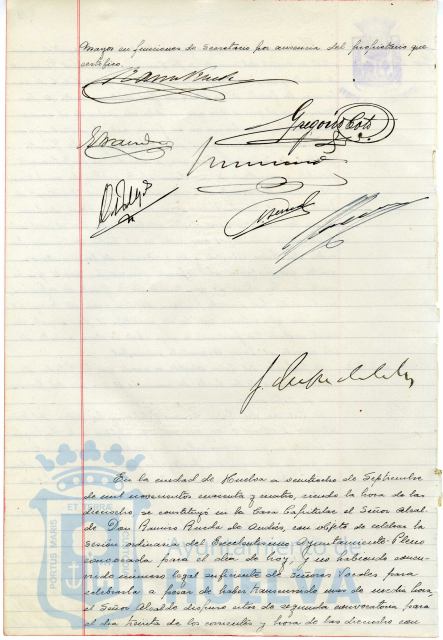 Mayor en funciones de Secretario por ausencia del propietario que
certifico.
Gregorio Coto
En la ciudad de Huelva a veintiocho de Septiembre
de mil novecientos cincuenta y cuatro, siendo la hora de las
dieciocho, se constituyó en la Casa Capitular el Señor Alcal-
de Don Ramiro de objeto de celebrar la
sesión ordinaria del Excelentísimo Ayuntamiento Pleno
convocada para el día de hoy, y no habiendo concu-
rrido número legal suficiente de Señores Vocales para
celebrarla a pesar de haber transcurrido más de media hora,
el Señor Alcalde dispuso de segunda convocatoria para
el día treinta de los corrientes y hora de las dieciocho con
PORTUS MARIS
ET
Ayuntamiento de